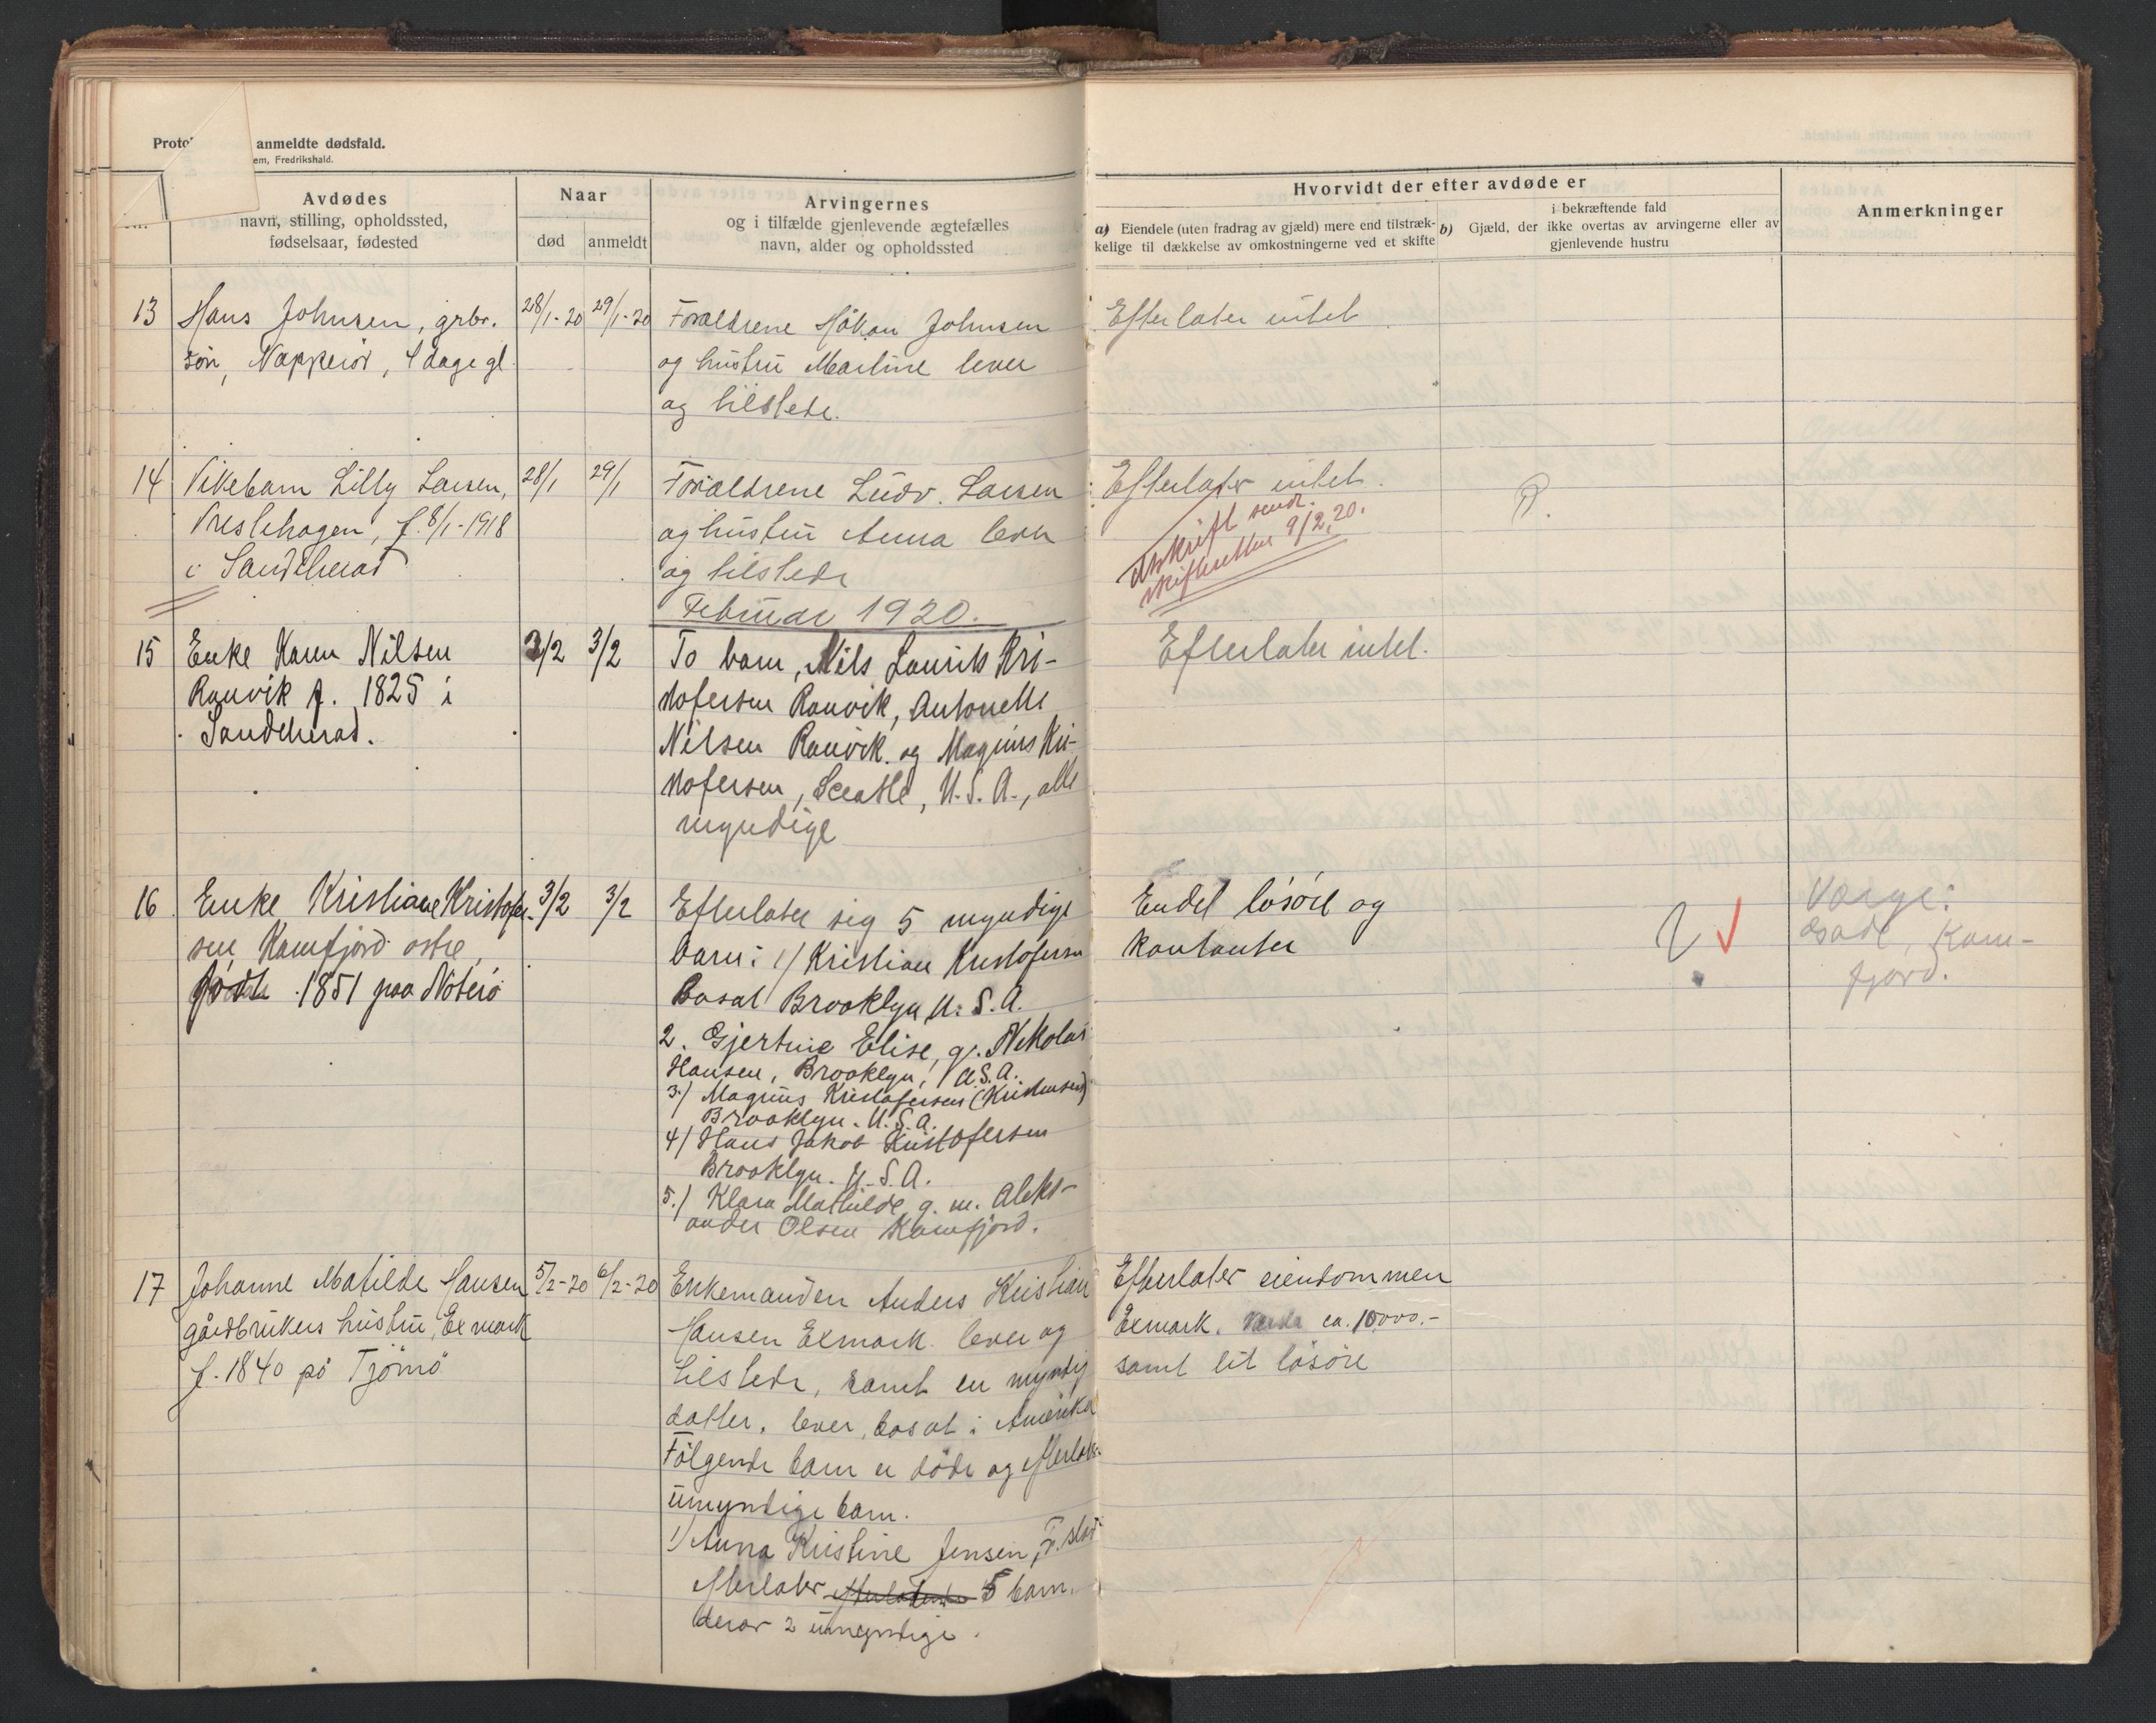 Proto anmeldte dødsfald.
em, Fredrikshald.
Avdødes
navn, stilling, opholdssted,
fødselsaar, fødested
Naar
død anmeldt
Arvingernes
og i tilfælde gjenlevende ægtefælles
navn, alder og opholdssted
Hvorvidt der efter avdøde er
a) Eiendele (uten fradrag av gjæld) mere end tilstræk-
kelige til dækkelse av omkostningerne ved et skifte
i bekræftende fald
b) Gjæld, der ikke overtas av arvingerne eller av
gjenlevende hustru
Anmerkninger
13 Hans Johnsen, grbr.
søn, Nappeiör, 4 dage gl.
28/1-20 29/1-20
Forældrene Håkon Johnsen
og hustru Martine lever
og tilstede.
Efterlater intet
14 Pikebarn Lilly Larsen,
Prestehagen, f. 8/1-1918
i Sandeherad
28/1 29/1
Foræeldrene Ludv. Larsen
og hustru Anna lever
og tilstede
Efterlater intet.
Utskrift sendt
skifteretten 9/2.20.
P.
Februar 1920.
15 Enke Karen Nilsen
Ranvik f. 1825 i
Sandeherad.
3/2 3/2
To barn, Nils Laurits Kri-
stofersen Ranvik, Antonette
Nilsen Ranvik og Magnus Kri-
stofersen, Seeatle, U.S.A., alle
myndige
Efterlater intet.
16 Enke Kristiane Kristofer-
sen Kamfjord østre,
fødte 1851 paa Nøterö
3/2 3/2
Efterlater sig 5 myndige
barn: 1) Kristian Kristofersen
Bosat Brooklyn U.S.A.
2. Gjertine Elise, g. Nikolai
Hansen, Brooklyn, U.S.A.
3.) Magnus Kristofersen (Kristensen)
Brooklyn. U.S.A.
4) Hans Jakob Kristofersen
Brooklyn. U.S.A.
5.) Klara Mathilde g. m. Aleks-
ander Olsen Kamfjord.
Endel løsøre og
kontanter
Værge:
Kam-
fjord.
17 Johanne Matilde Hansen
gårdbrukers hustru, Exmark
f. 1840 på Tjömö
5/2-20 6/2-20
Enkemanden Anders Kristian
Hansen Exmark lever og
tilstede, samt en myndig
datter, lever, bosat i Amerika
Følgende barn er døde og efterlater
umyndige barn.
1) Anna Kristine Jensen, F.stad
efterlater efterladende 5 barn,
derav 2 umyndige.
Efterlater eiendommen
Exmark. Værdi ca. 10000.-
samt lit løsøre